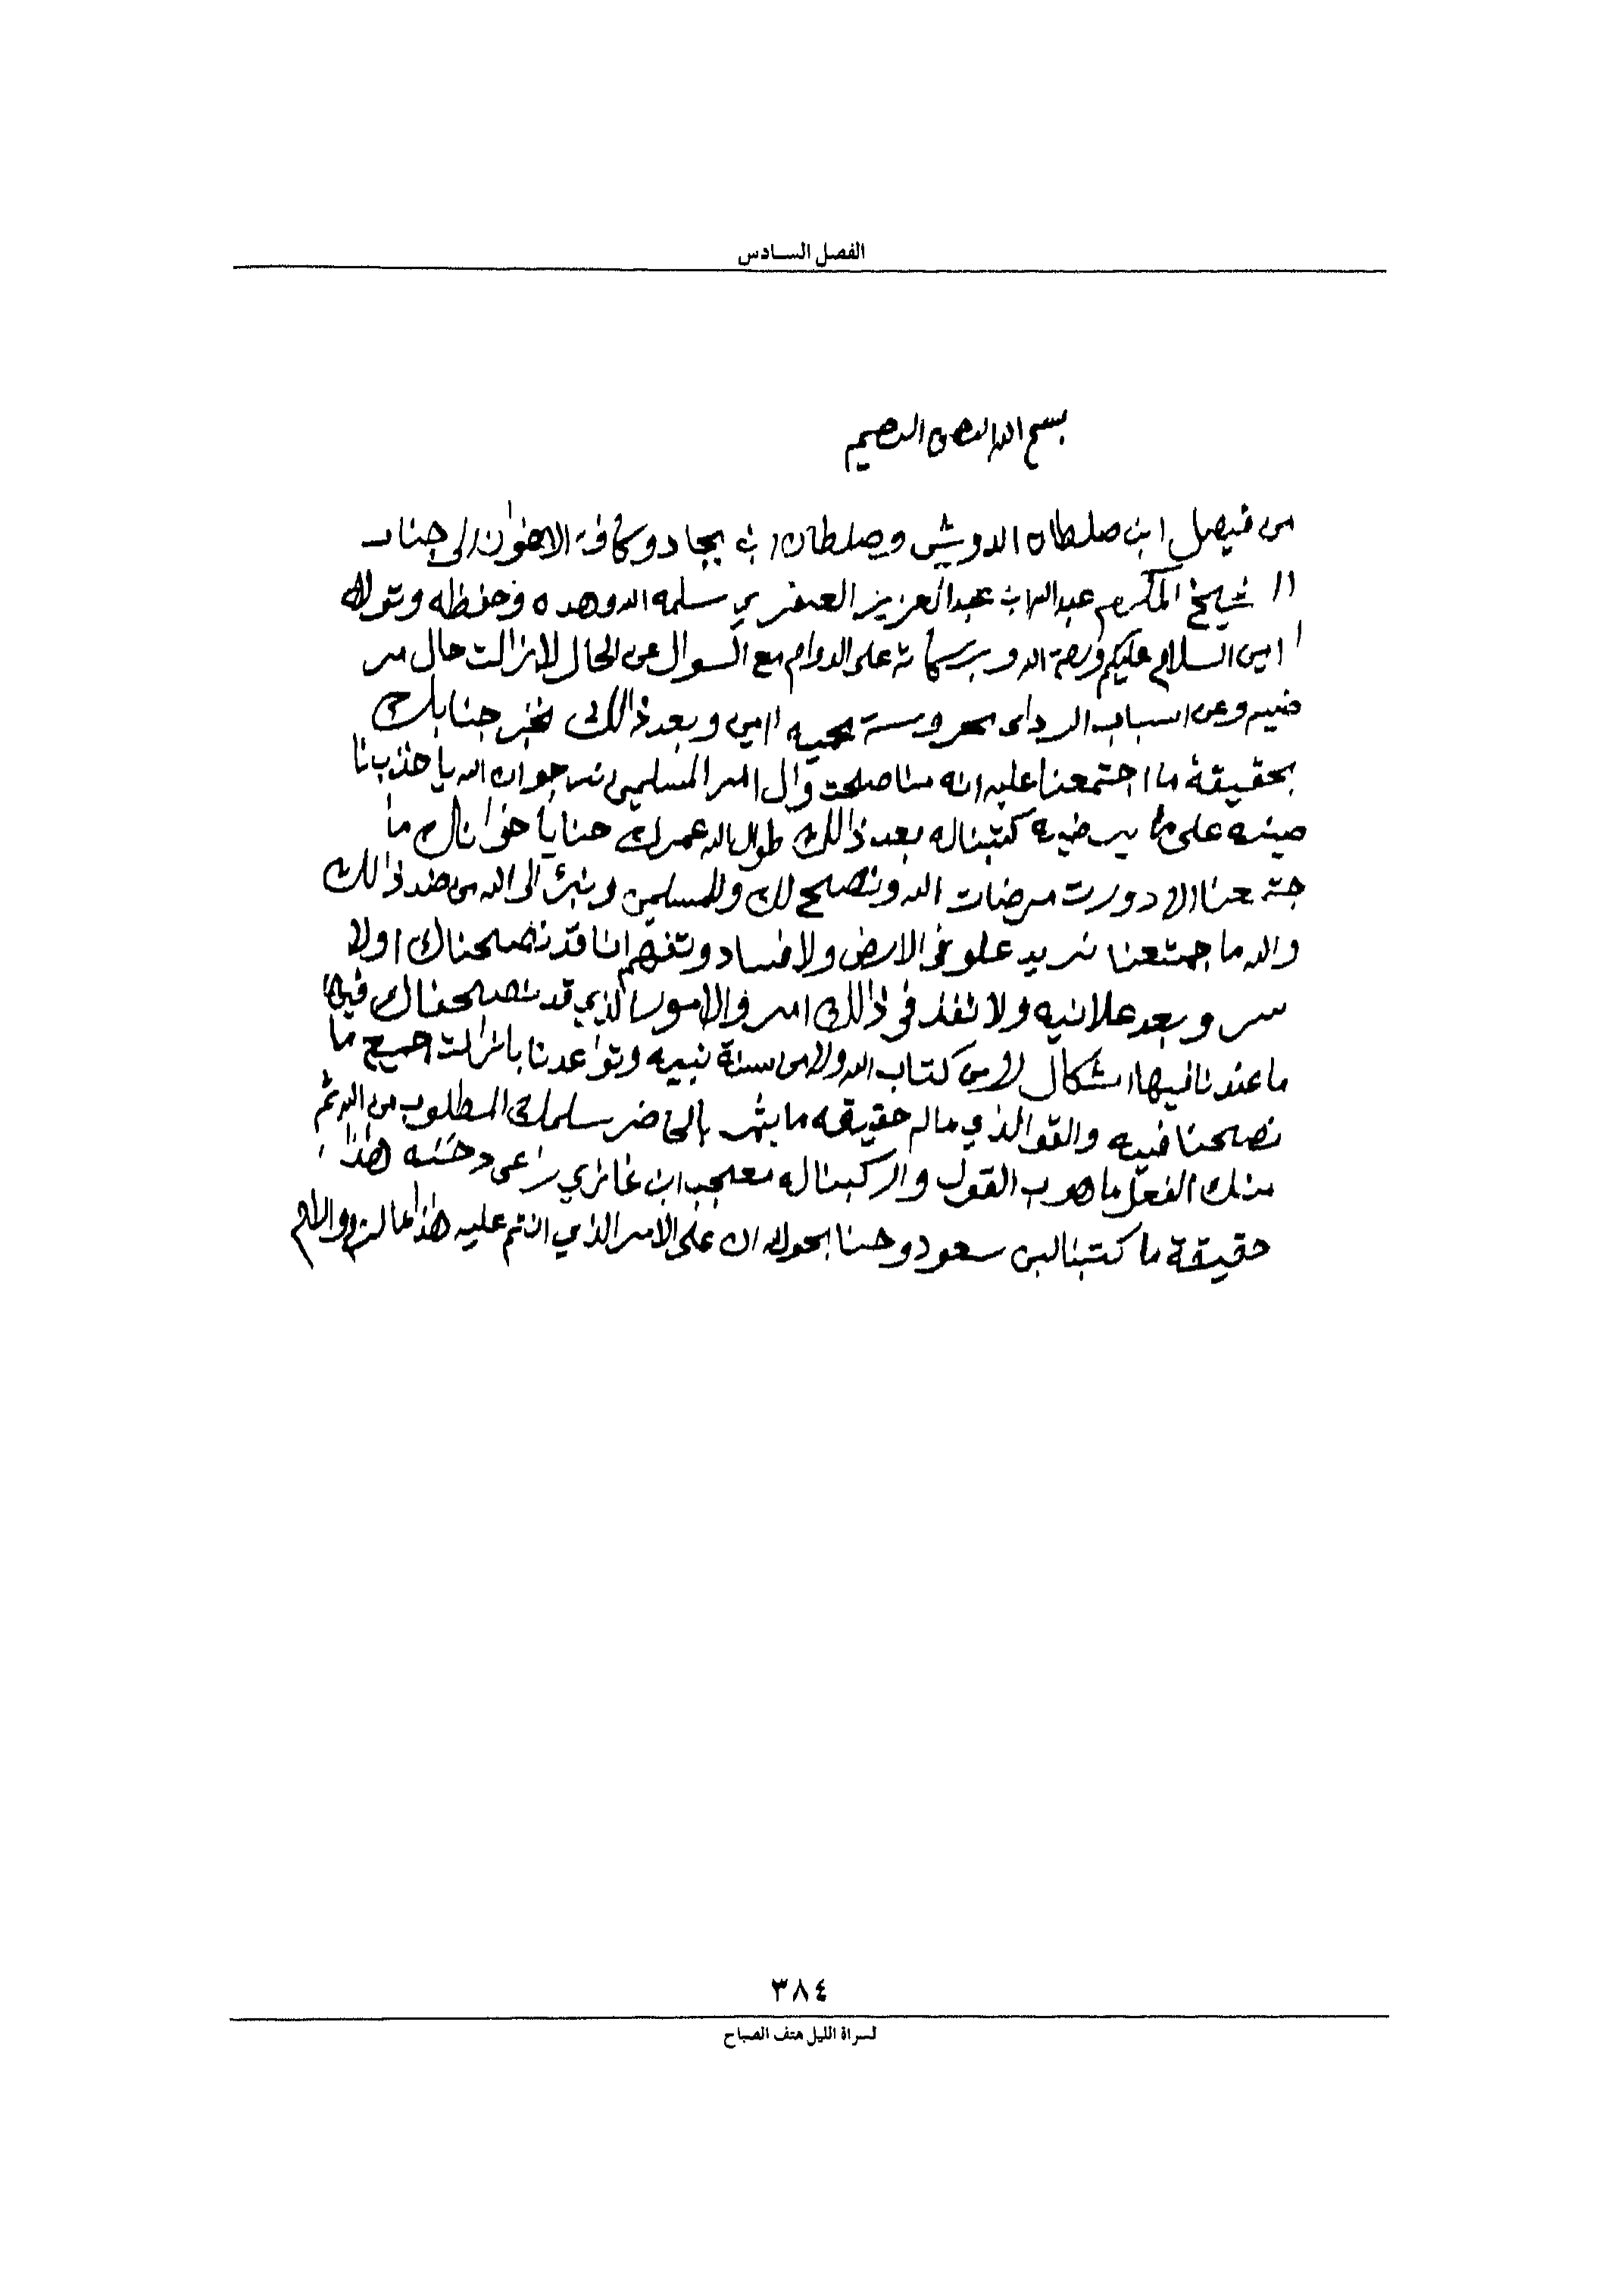 الفصل السادس
بسم الله الرحمن الرحيم
من فيصل ابن صلطان الدويش وصلطان ابن بجاد وكافة الاخوان الى جناب
الشيخ المكرم عبدالله ابن عبدالعزيز العنقري سلمه الله وهداه وحفظه وتولاه
امين السلام عليكم ورحمة الله وبركاته على الدوام مع السوال عن الحال لازالت حال من
ضيم وعن اسباب الردى محروسة محميه اامين وبعد ذالك نخبر جنابك
بحقيقة ما اجتمعنا عليه انه من اصلحت وال امر المسلمين نرجو ان الله ياخذ بنا
صيته على ما يرضيه كتبناله بعد ذالك طوال الله عمرك حنا يا خوانك ما
جتمعنا الا دورت مرضات الله ونصح لك وللمسلمين ونبرئ الى الله من ضد ذالك
والله ما جمتعنا نريد علو في الارض ولا فساد وتفهم اننا قد نصحناك اولا
سر وبعد علانيه ولا نفذ في ذالك امر والامور الذي قد نصحناك فيها
ما عندنا فيها اشكال لا من كتاب الله ولا من سنة نبيه وتواعدنا بازالت جميع ما
نصحنا فيه والقو الذي ماله حقيقه ما يثمر بالحاضر سلمك المطلوب من الله ثم
منك الفعل ما هو ب القول و اركبناله معجب ابن غازي راعى دخنه هذا
حقيقة ما كتبنا لبن سعود وحنا بحول الله ان على الامر الذي انتم عليه هذا ما لزم والسلام
٣٨٤
لسراة الليل هتف الصباح